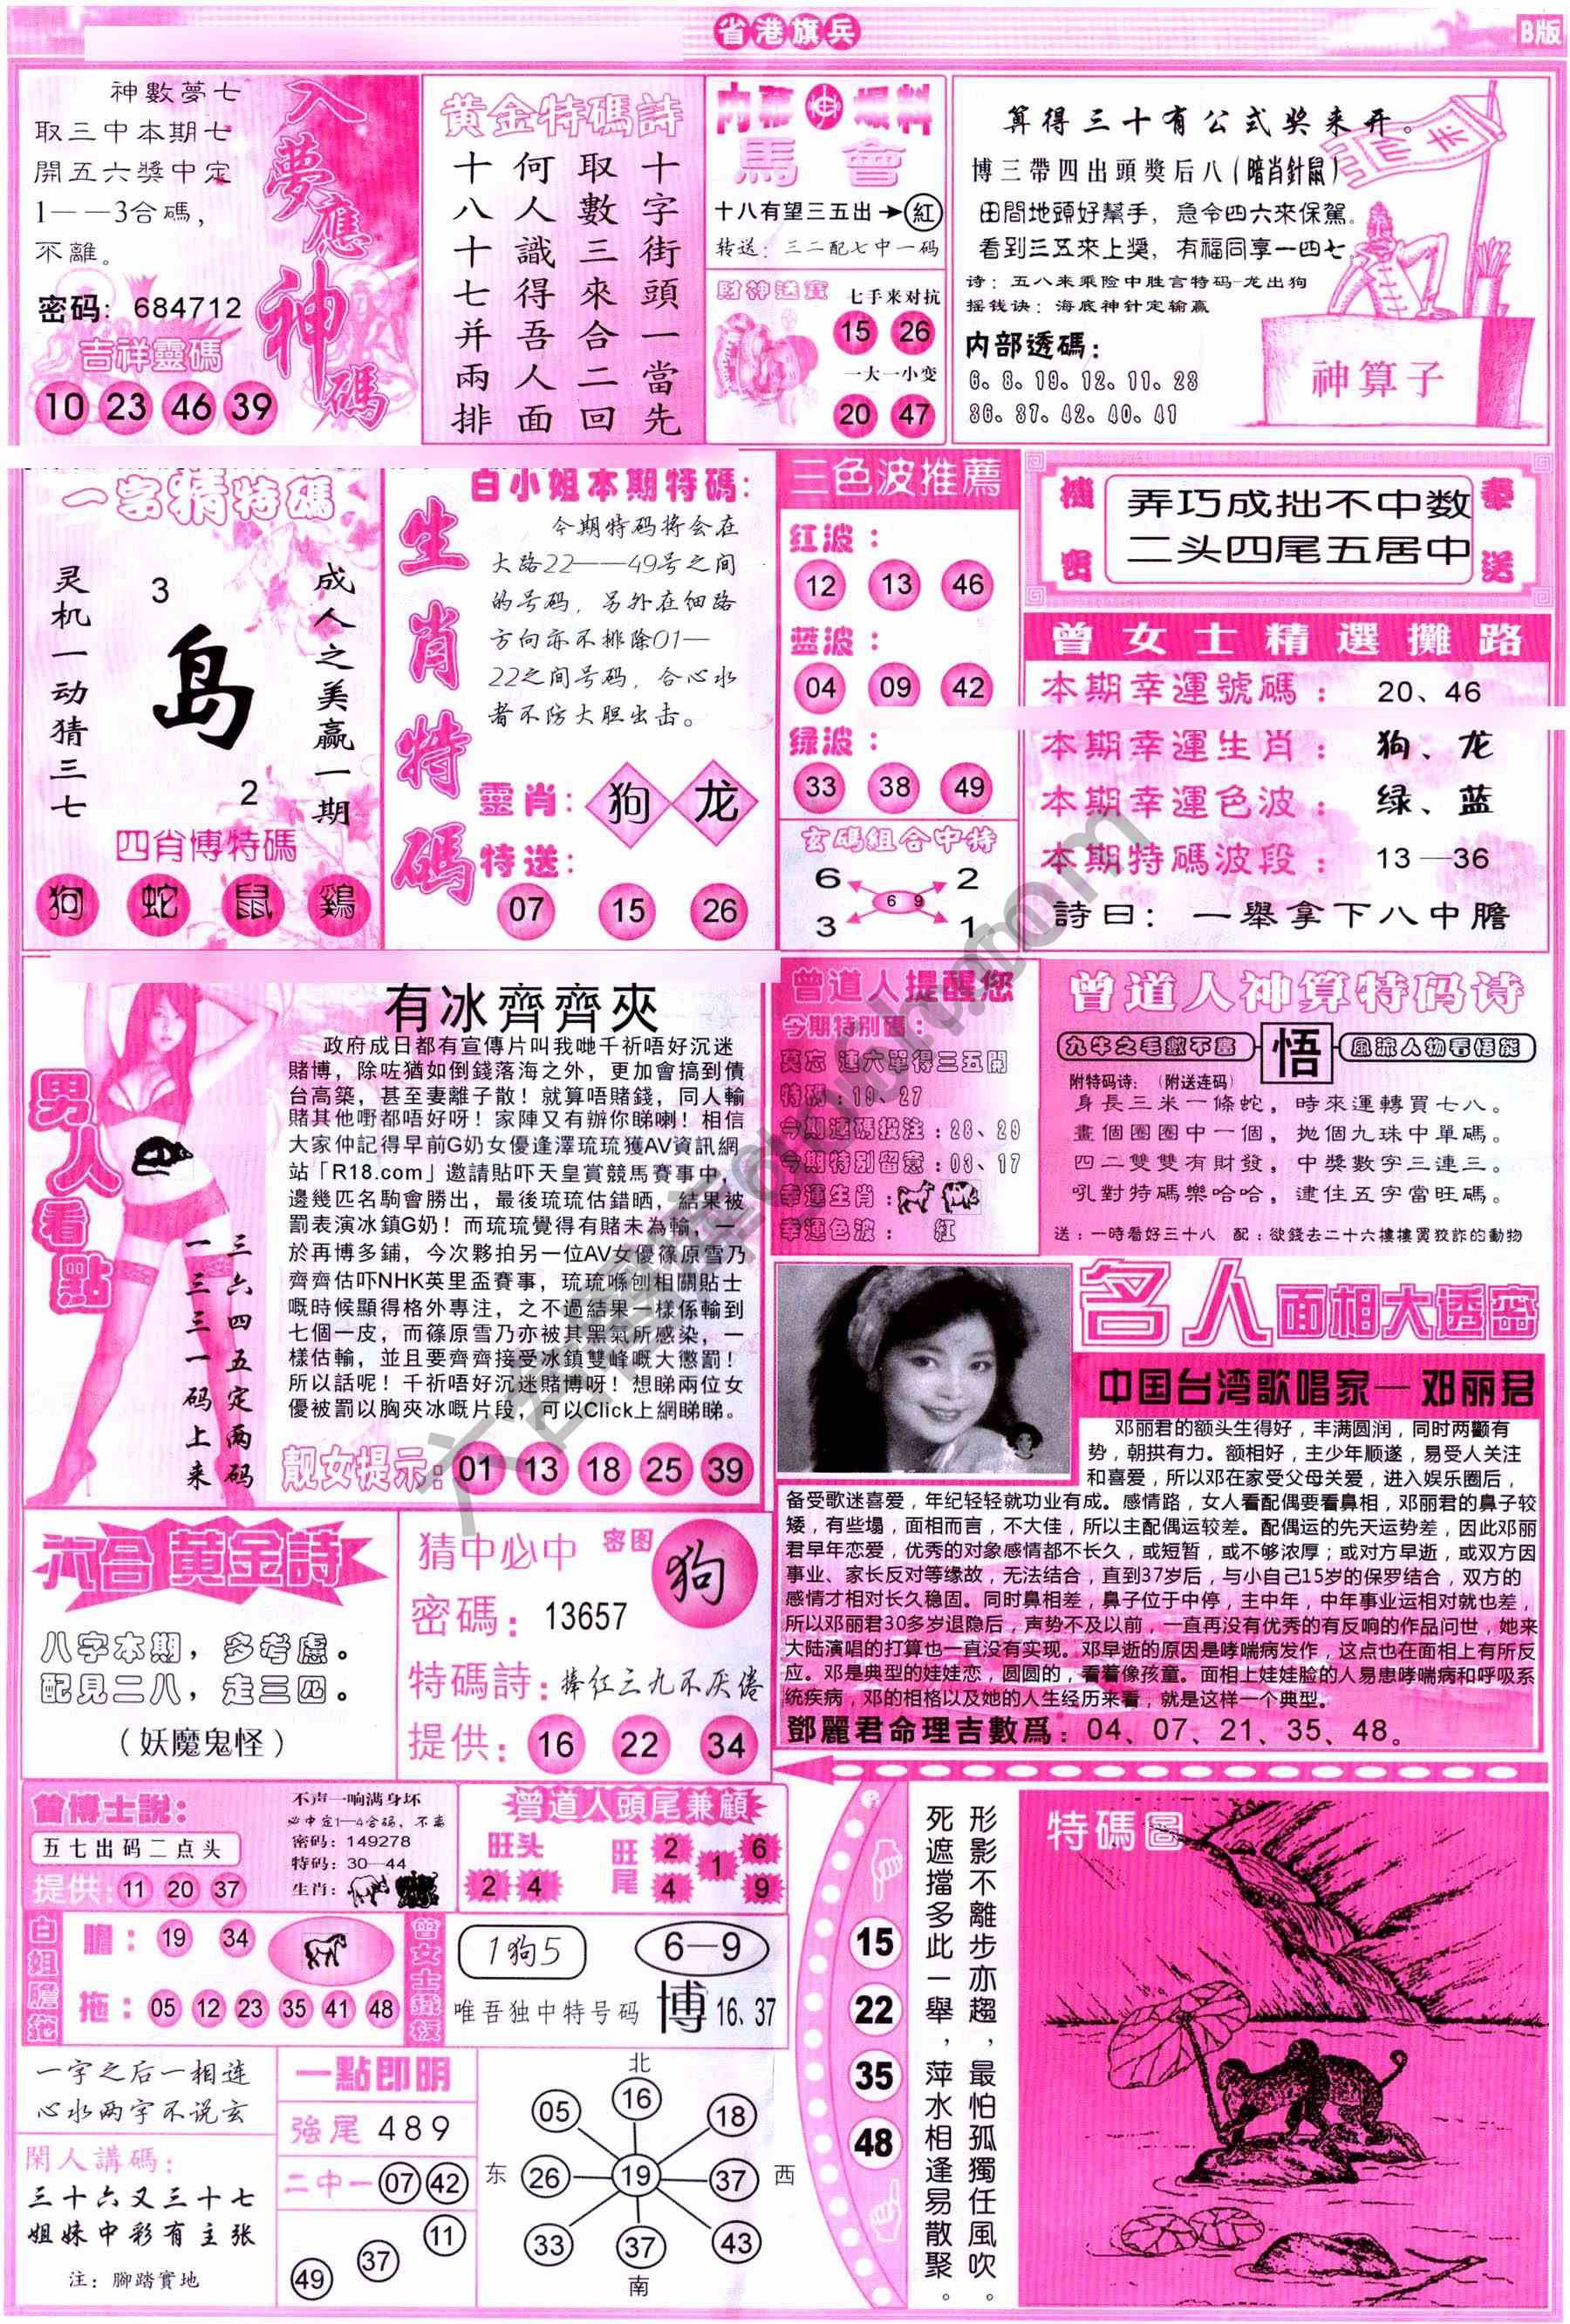 省港旗兵
B版
神數夢七
取三中本期七
開五六獎中定
1——3合碼，
不離。
密码：684712
吉祥靈碼
10 23 46 39
入夢應神碼
黄金特碼詩
十字街頭一當先
取數三來合二回
何人識得吾人面
十八十七并兩排
内幕爆料
馬會
十八有望三五出→紅
转送：三二配七中一码
財神送寶
七手来对抗
15 26
一大一小变
20 47
算得三十有公式奖来开。
博三帶四出頭獎后八(暗肖針鼠)
田間地頭好幫手，急令四六來保駕。
看到三五來上獎，有福同享一四七。
诗：五八来乘险中胜言特码-龙出狗
摇钱诀：海底神针定输赢
内部透碼：
6、8、19、12、11、23
36、37、42、40、41
神算子
一字猜特碼
成人之美赢一期
3
岛
2
灵机一动猜三七
四肖博特碼
狗 蛇 鼠 鷄
生肖特碼
白小姐本期特碼：
今期特码将会在
大路22——49号之间
的号码，另外在细路
方向亦不排除01—
22之间号码，合心水
者不防大胆出击。
靈肖：狗 龙
特送：
07 15 26
三色波推薦
红波：
12 13 46
蓝波：
04 09 42
绿波：
33 38 49
玄碼組合中特
6 2
6 9
3 1
機密
弄巧成拙不中数
二头四尾五居中
奉送
曾女士精選攤路
本期幸運號碼：20、46
本期幸運生肖：狗、龙
本期幸運色波：绿、蓝
本期特碼波段：13—36
詩曰：一舉拿下八中膽
男人看點
三六四五定两码
一三三一码上来
有冰齊齊夾
政府成日都有宣傳片叫我哋千祈唔好沉迷
賭博，除咗猶如倒錢落海之外，更加會搞到債
台高築，甚至妻離子散！就算唔賭錢，同人輸
賭其他嘢都唔好呀！家陣又有辦你睇喇！相信
大家仲記得早前G奶女優逢澤琉琉獲AV資訊網
站「R18.com」邀請貼吓天皇賞競馬賽事中，
邊幾匹名駒會勝出，最後琉琉估錯晒，結果被
罰表演冰鎮G奶！而琉琉覺得有賭未為輸，一
於再博多鋪，今次夥拍另一位AV女優篠原雪乃
齊齊估吓NHK英里盃賽事，琉琉喺刨相關貼士
嘅時候顯得格外專注，之不過結果一樣係輸到
七個一皮，而篠原雪乃亦被其黑氣所感染，一
樣估輸，並且要齊齊接受冰鎮雙峰嘅大懲罰！
所以話呢！千祈唔好沉迷賭博呀！想睇兩位女
優被罰以胸夾冰嘅片段，可以Click上網睇睇。
靓女提示：01 13 18 25 39
曾道人提醒您
今期特別碼：
莫忘 連六單得三五開
特碼：19、27
今期連碼投注：28、29
今期特别留意：03、17
幸運生肖：
幸運色波： 紅
曾道人神算特码诗
九牛之毛數不富
悟
風流人物看悟能
附特码诗：(附送连码)
身長三米一條蛇，時來運轉買七八。
畫個圈圈中一個，拋個九珠中單碼。
四二雙雙有財發，中獎數字三連三。
吼對特碼樂哈哈，逮住五字當旺碼。
送：一時看好三十八 配：欲錢去二十六樓樓買狡詐的動物
名人面相大透密
中国台湾歌唱家—邓丽君
邓丽君的额头生得好，丰满圆润，同时两颧有
势，朝拱有力。额相好，主少年顺遂，易受人关注
和喜爱，所以邓在家受父母关爱，进入娱乐圈后，
备受歌迷喜爱，年纪轻轻就功业有成。感情路，女人看配偶要看鼻相，邓丽君的鼻子较
矮，有些塌，面相而言，不大佳，所以主配偶运较差。配偶运的先天运势差，因此邓丽
君早年恋爱，优秀的对象感情都不长久，或短暂，或不够浓厚；或对方早逝，或双方因
事业、家长反对等缘故，无法结合，直到37岁后，与小自己15岁的保罗结合，双方的
感情才相对长久稳固。同时鼻相差，鼻子位于中停，主中年，中年事业运相对就也差，
所以邓丽君30多岁退隐后，声势不及以前，一直再没有优秀的有反响的作品问世，她来
大陆演唱的打算也一直没有实现。邓早逝的原因是哮喘病发作，这点也在面相上有所反
应。邓是典型的娃娃恋，圆圆的，看着像孩童。面相上娃娃脸的人易患哮喘病和呼吸系
统疾病，邓的相格以及她的人生经历来看，就是这样一个典型。
鄧麗君命理吉數爲：04、07、21、35、48。
六合黄金詩
八字本期，多考慮。
配見二八，走三四。
（妖魔鬼怪）
猜中必中 密图 狗
密碼：13657
特碼詩：捧红三九不厌倦
提供：16 22 34
曾博士説：
五七出码二点头
提供：11 20 37
不声一响满身坏
必中定1—4合码，不离
密码：149278
特码：30—44
生肖：
曾道人頭尾兼顧
旺头
2 4
旺尾
2 6
1
4 9
白姐膽拖
膽：19 34
拖：05 12 23 35 41 48
曾女士鐵板
1狗5
6—9
唯吾独中特号码 博16、37
一字之后一相连
心水两字不说玄
閑人講碼：
三十六又三十七
姐妹中彩有主张
注：腳踏實地
一點即明
強尾 489
二中一 07 42
11
37
49
北
05 16 18
东 26 19 37 西
33 37 43
南
15
22
35
48
形影不離步亦趨，最怕孤獨任風吹。
死遮擋多此一舉，萍水相逢易散聚。
特碼圖